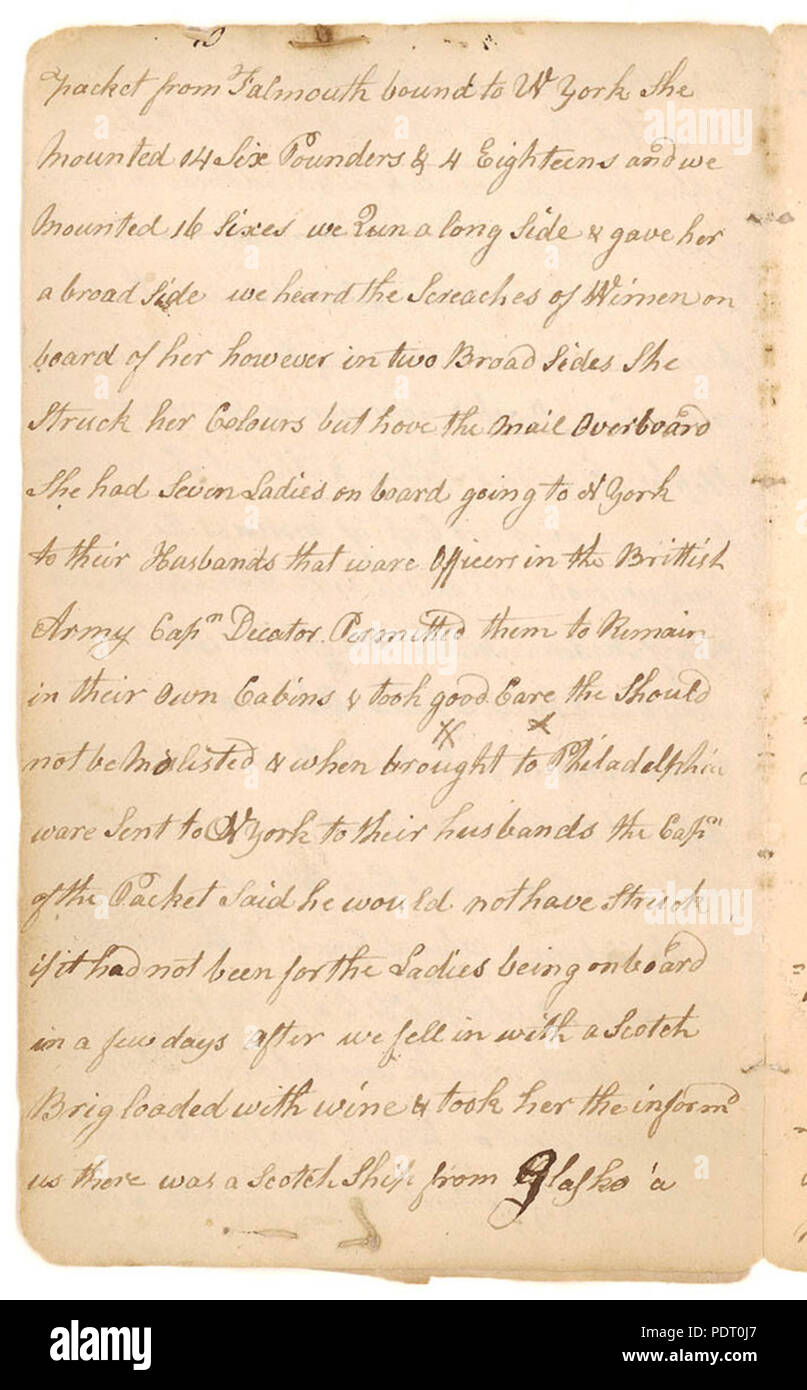 packet from Falmouth bound to N York She
Mounted 14 Six Pounders & 4 Eighteens and we
Mounted 16 Sixes we Run a long Side & gave her
a broad Side we heard the Screaches of Wimen on
board of her however in two Broad Sides She
Struck her Colours but hove the Mail Overboard
She had Seven Ladies on board going to N York
to their Husbands that ware Officers in the Brittish
Army Capn Decator Permitted them to Remain
in their Own Cabins & took good Care the Should
not be Molisted & when brought to Philadelphia
ware Sent to N York to their husbands the Capn
of the Packet Said he would not have Struck
if it had not been for the Ladies being on board
in a few days after we fell in with a Scotch
Brig loaded with wine & took her the informd
us there was a Scotch Ship from Glasko a
alamy
Image ID: PDT0J7
www.alamy.com